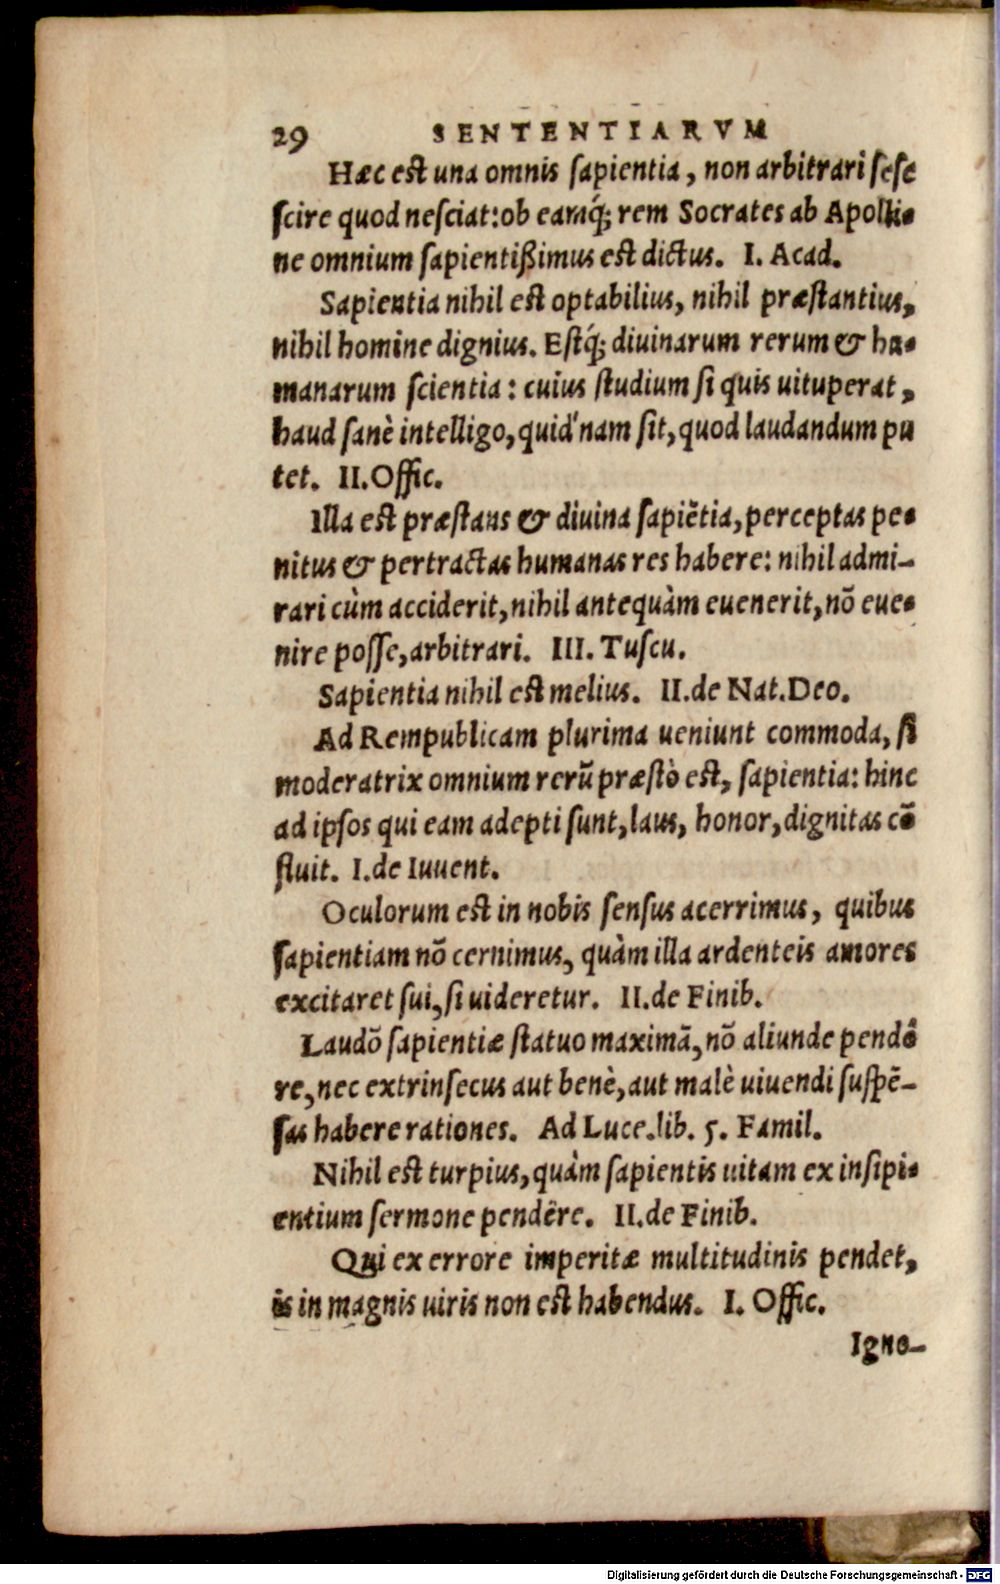 29 SENTENTIARVM
Hæc est una omnis sapientia, non arbitrari sese
scire quod nesciat: ob eamq́; rem Socrates ab Apolli-
ne omnium sapientißimus est dictus. I. Acad.
Sapientia nihil est optabilius, nihil præstantius,
nihil homine dignius. Estq́; diuinarum rerum & hu-
manarum scientia: cuius studium si quis uituperat,
haud sanè intelligo, quid nam sit, quod laudandum pu
tet. II. Offic.
Illa est præstans & diuina sapiẽtia, perceptas pe-
nitus & pertractas humanas res habere: nihil admi-
rari cùm acciderit, nihil antequàm euenerit, nõ eue-
nire posse, arbitrari. III. Tuscu.
Sapientia nihil est melius. II. de Nat. Deo.
Ad Rempublicam plurima ueniunt commoda, si
moderatrix omnium rerũ præstò est, sapientia: hinc
ad ipsos qui eam adepti sunt, laus, honor, dignitas cõ
fluit. I. de Iuuent.
Oculorum est in nobis sensus acerrimus, quibus
sapientiam nõ cernimus, quàm illa ardenteis amores
excitaret sui, si uideretur. II. de Finib.
Laudõ sapientiæ statuo maximã, nõ aliunde pendê
re, nec extrinsecus aut benè, aut malè uiuendi suspẽ-
sas habere rationes. Ad Luce. lib. 5. Famil.
Nihil est turpius, quàm sapientis uitam ex insipi-
entium sermone pendêre. II. de Finib.
Qui ex errore imperitæ multitudinis pendet,
is in magnis uiris non est habendus. I. Offic.
Igno-
Digitalisierung gefördert durch die Deutsche Forschungsgemeinschaft - DFG